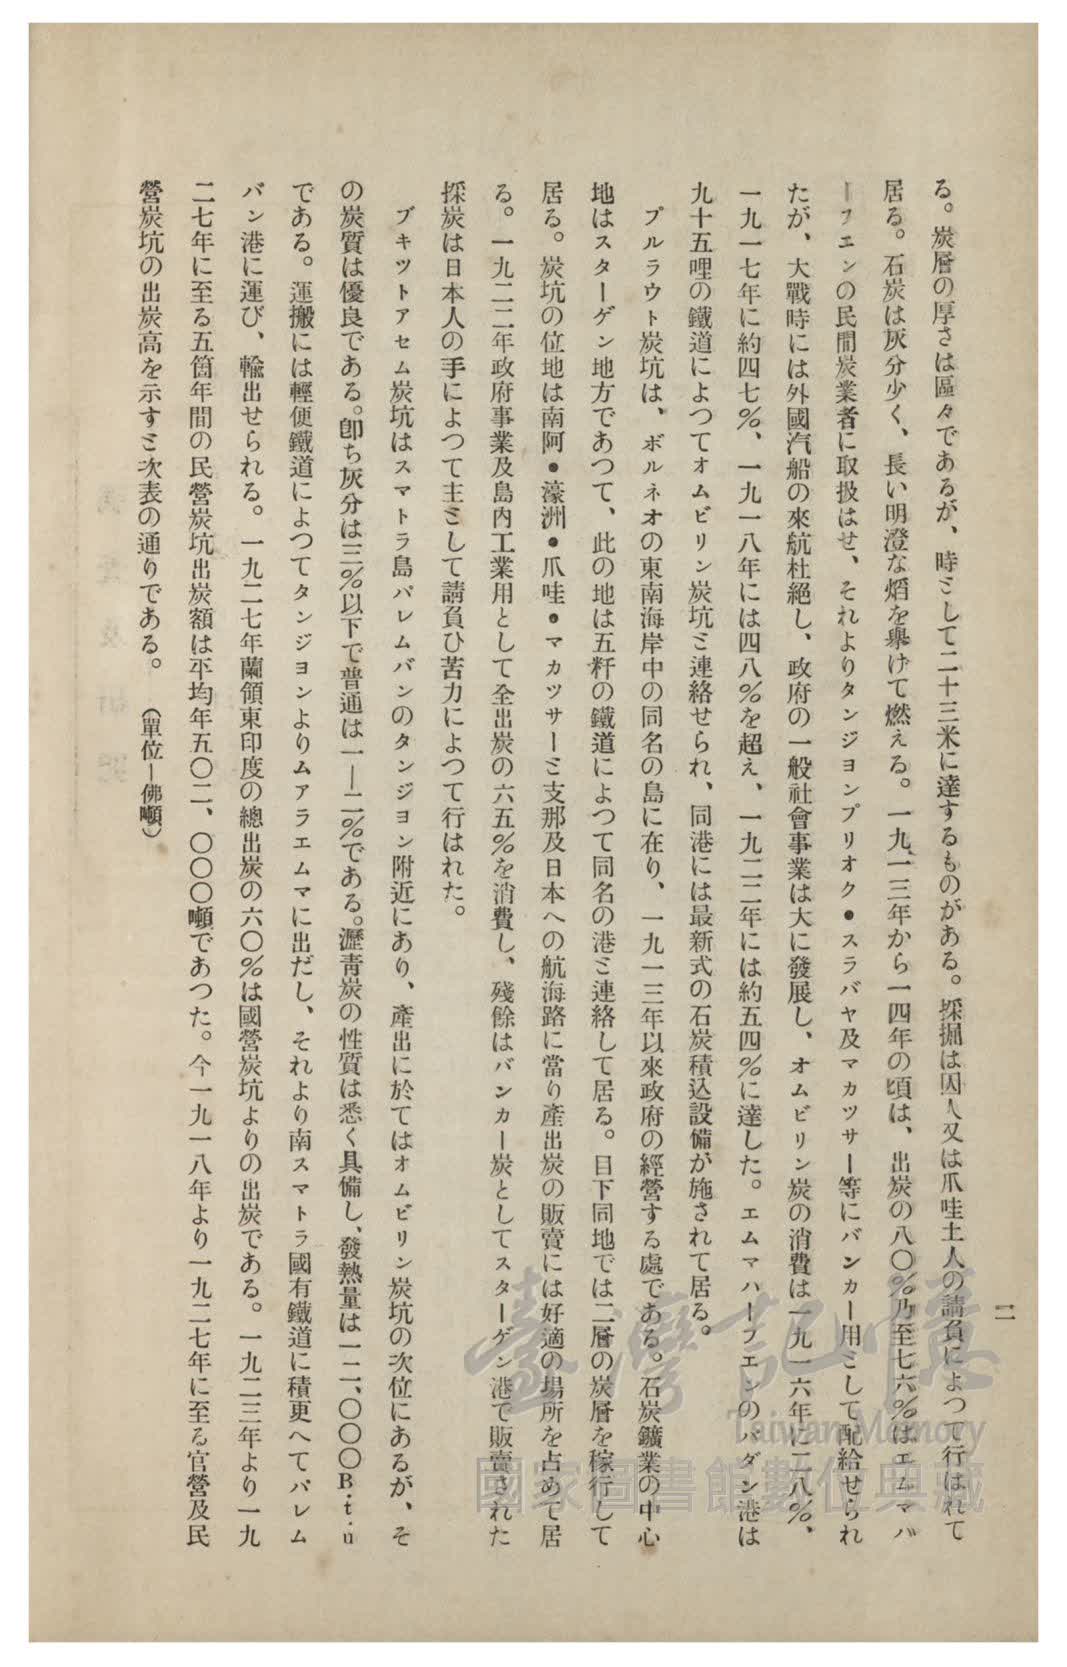 二
る。炭層の厚さは區々であるが、時として二十三米に達するものがある。採掘は囚人又は爪哇土人の請負によつて行はれて
居る。石炭は灰分少く、長い明澄な熖を擧げて燃える。一九一三年から一四年の頃は、出炭の八〇%乃至七六%はエムマバ
ーフエンの民間炭業者に取扱はせ、それよりタンジヨンプリオク・スラバヤ及マカツサー等にバンカー用として配給せられ
たが、大戰時には外國汽船の來航杜絕し、政府の一般社會事業は大に發展し、オムビリン炭の消費は一九一六年に二八%、
一九一七年に約四七%、一九一八年には四八%を超え、一九二二年には約五四%に達した。エムマハーフエンのパダン港は
九十五哩の鐵道によつてオムビリン炭坑と連絡せられ、同港には最新式の石炭積込設備が施されて居る。
プルラウト炭坑は、ボルネオの東南海岸中の同名の島に在り、一九一三年以來政府の經營する處である。石炭鑛業の中心
地はスターゲン地方であつて、此の地は五粁の鐵道によつて同名の港と連絡して居る。目下同地では二層の炭層を稼行して
居る。炭坑の位地は南阿・濠洲・爪哇・マカツサーと支那及日本への航海路に當り產出炭の販賣には好適の場所を占めて居
る。一九二二年政府事業及島內工業用として全出炭の六五%を消費し、殘餘はバンカー炭としてスターゲン港で販賣された
採炭は日本人の手によつて主として請負ひ苦力によつて行はれた。
ブキツトアセム炭坑はスマトラ島パレムバンのタンジヨン附近にあり、產出に於てはオムビリン炭坑の次位にあるが、そ
の炭質は優良である。卽ち灰分は三%以下で普通は一—二%である。瀝青炭の性質は悉く具備し、發熱量は一二、〇〇〇B.t.u
である。運搬には輕便鐵道によつてタンジヨンよりムアラエムマに出だし、それより南スマトラ國有鐵道に積更へてパレム
バン港に運び、輸出せられる。一九二七年蘭領東印度の總出炭の六〇%は國營炭坑よりの出炭である。一九二三年より一九
二七年に至る五箇年間の民營炭坑出炭額は平均年五〇二、〇〇〇噸であつた。今一九一八年より一九二七年に至る官營及民
營炭坑の出炭高を示すと次表の通りである。 (單位—佛噸)
臺灣記憶
Taiwan Memory
國家圖書館數位典藏